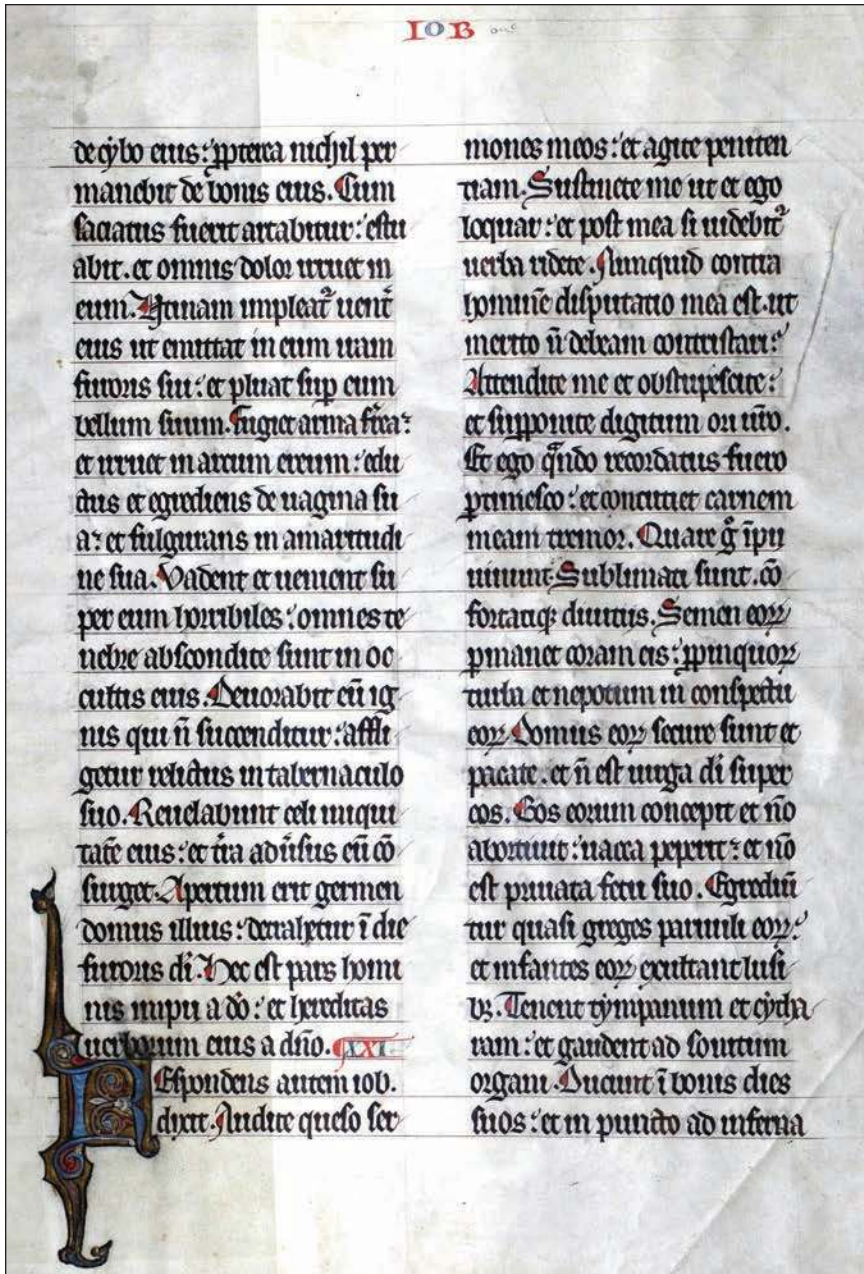 IOB
de cybo eius: ꝓpterea nichil per
manebit de bonis eius. Cum
saciatus fuerit artabitur: estu
abit. et omnis dolor irruet in
eum. Utinam impleat᷑ uent᷑
eius ut emittat in eum iram
furoris sui: et pluat suꝑ eum
bellum suum. Fugiet arma fr̃ea:
et irruet in arcum ereum: edu
ctus et egrediens de uagina su
a: et fulgurans in amaritudi
ne sua. Vadent et uenient su
per eum horribiles: omnes te
nebre abscondite sunt in oc
cultis eius. Deuorabit eū ig
nis qui ñ succenditur: affli
getur relictus in tabernaculo
suo. Reuelabunt celi iniqui
tatē eius: et t̃ra adũsus eū cō
surget. Apertum erit germen
domus illius: detrahetur ī die
furoris dī. Hec est pars homi
nis impii a dō: et hereditas
uerborum eius a dño. XXI
REspondens autem iob.
dixit. Audite queso ser
mones meos: et agite peniten
tiam. Sustinete me ut et ego
loquar: et post mea si uidebit᷑
uerba ridete. Nunquid contra
hominē disputatio mea est. ut
merito ñ debeam contristari:
Attendite me et obstupescite:
et supponite digitum ori ũro.
Et ego qñdo recordatus fuero
ꝑtimesco: et concutiet carnem
meam tremor. Quare g̃ īpii
uiuunt. Sublimati sunt. cō
fortatiqꝫ diuitiis. Semen eoꝝ
ꝑmanet coram eis: ꝓpinquoꝝ
turba et nepotum in conspectu
eoꝝ. Domus eoꝝ secure sunt et
pacate. et ñ est uirga dī super
eos. Bos eorum concepit et ñō
abortiuit: uacca peperit: et ñō
est priuata fetu suo. Egrediũ
tur quasi greges paruuli eoꝝ:
et infantes eoꝝ exultant lusi
bꝫ. Tenent tympanum et cytha
ram: et gaudent ad sonitum
organi. Ducunt ī bonis dies
suos: et in puncto ad inferna